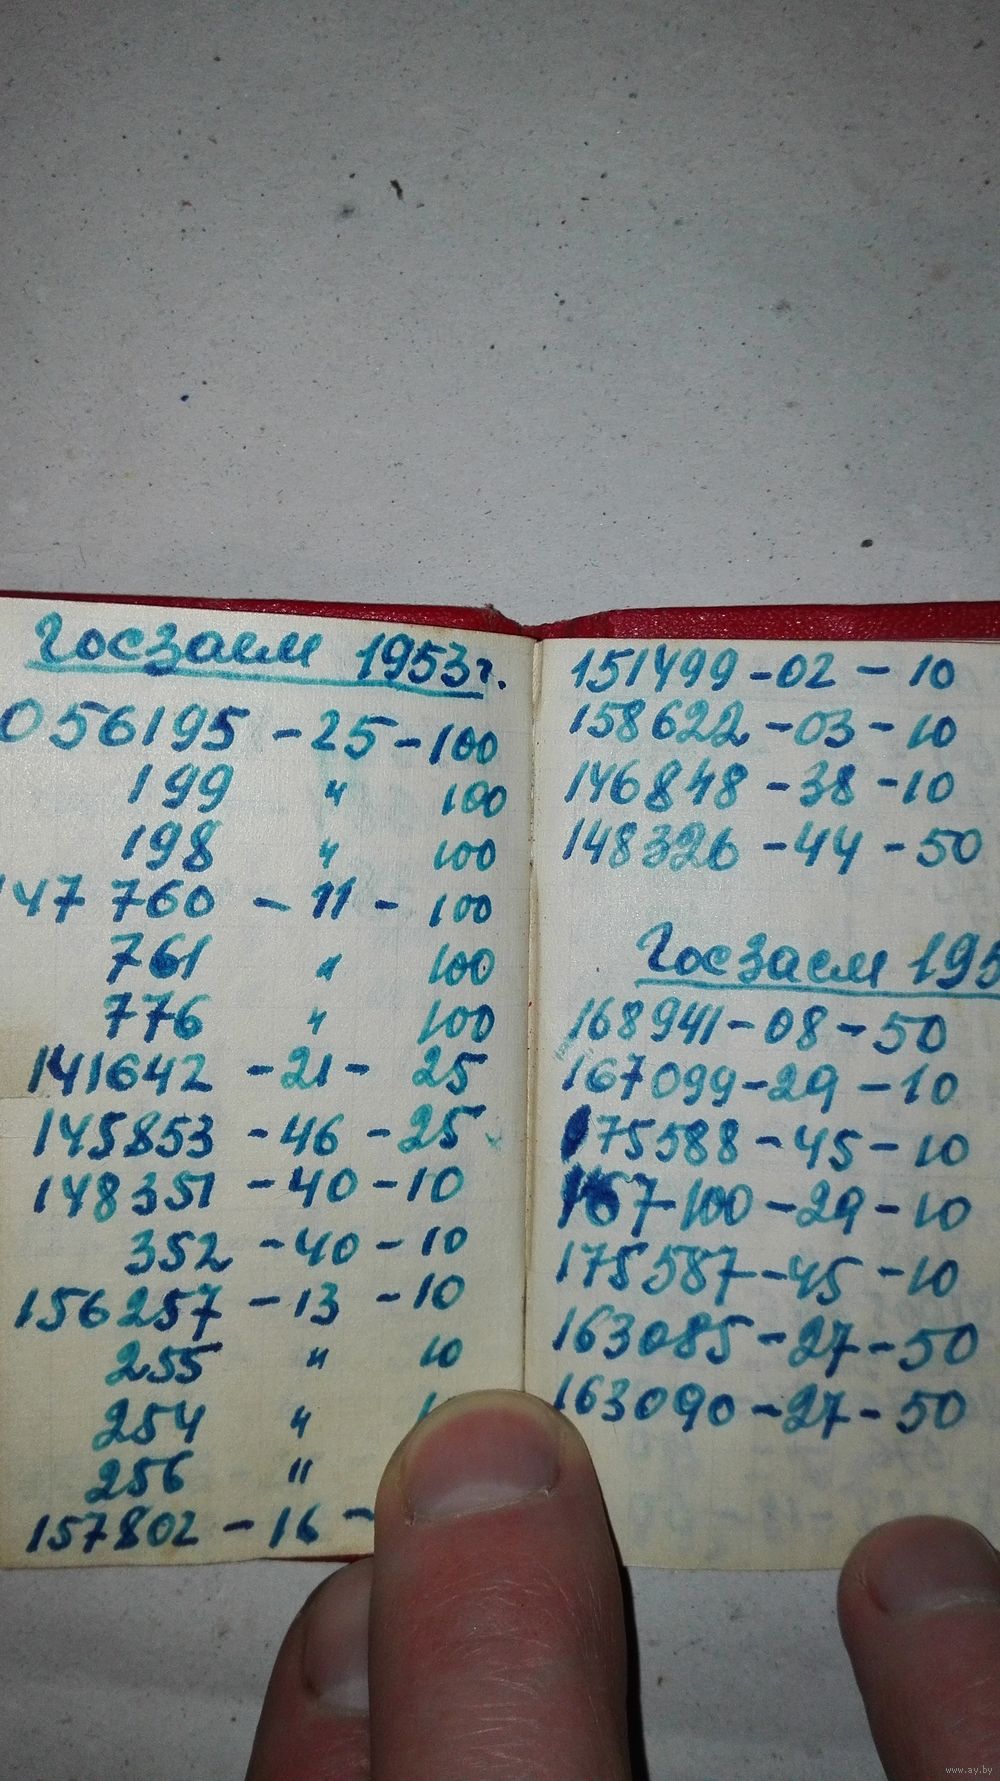 Госзаем 1953г.
056195 - 25 - 100
199 " 100
198 " 100
147 760 - 11 - 100
761 " 100
776 " 100
141642 - 21 - 25
145853 - 46 - 25
148351 - 40 - 10
352 - 40 - 10
156257 - 13 - 10
255 " 10
254 " 1
256 "
157802 - 16 -
151499 - 02 - 10
158622 - 03 - 10
146848 - 38 - 10
148326 - 44 - 50
Госзаем 195
168941 - 08 - 50
167099 - 29 - 10
175588 - 45 - 10
167100 - 29 - 10
175587 - 45 - 10
163085 - 27 - 50
163090 - 27 - 50
www.ay.by